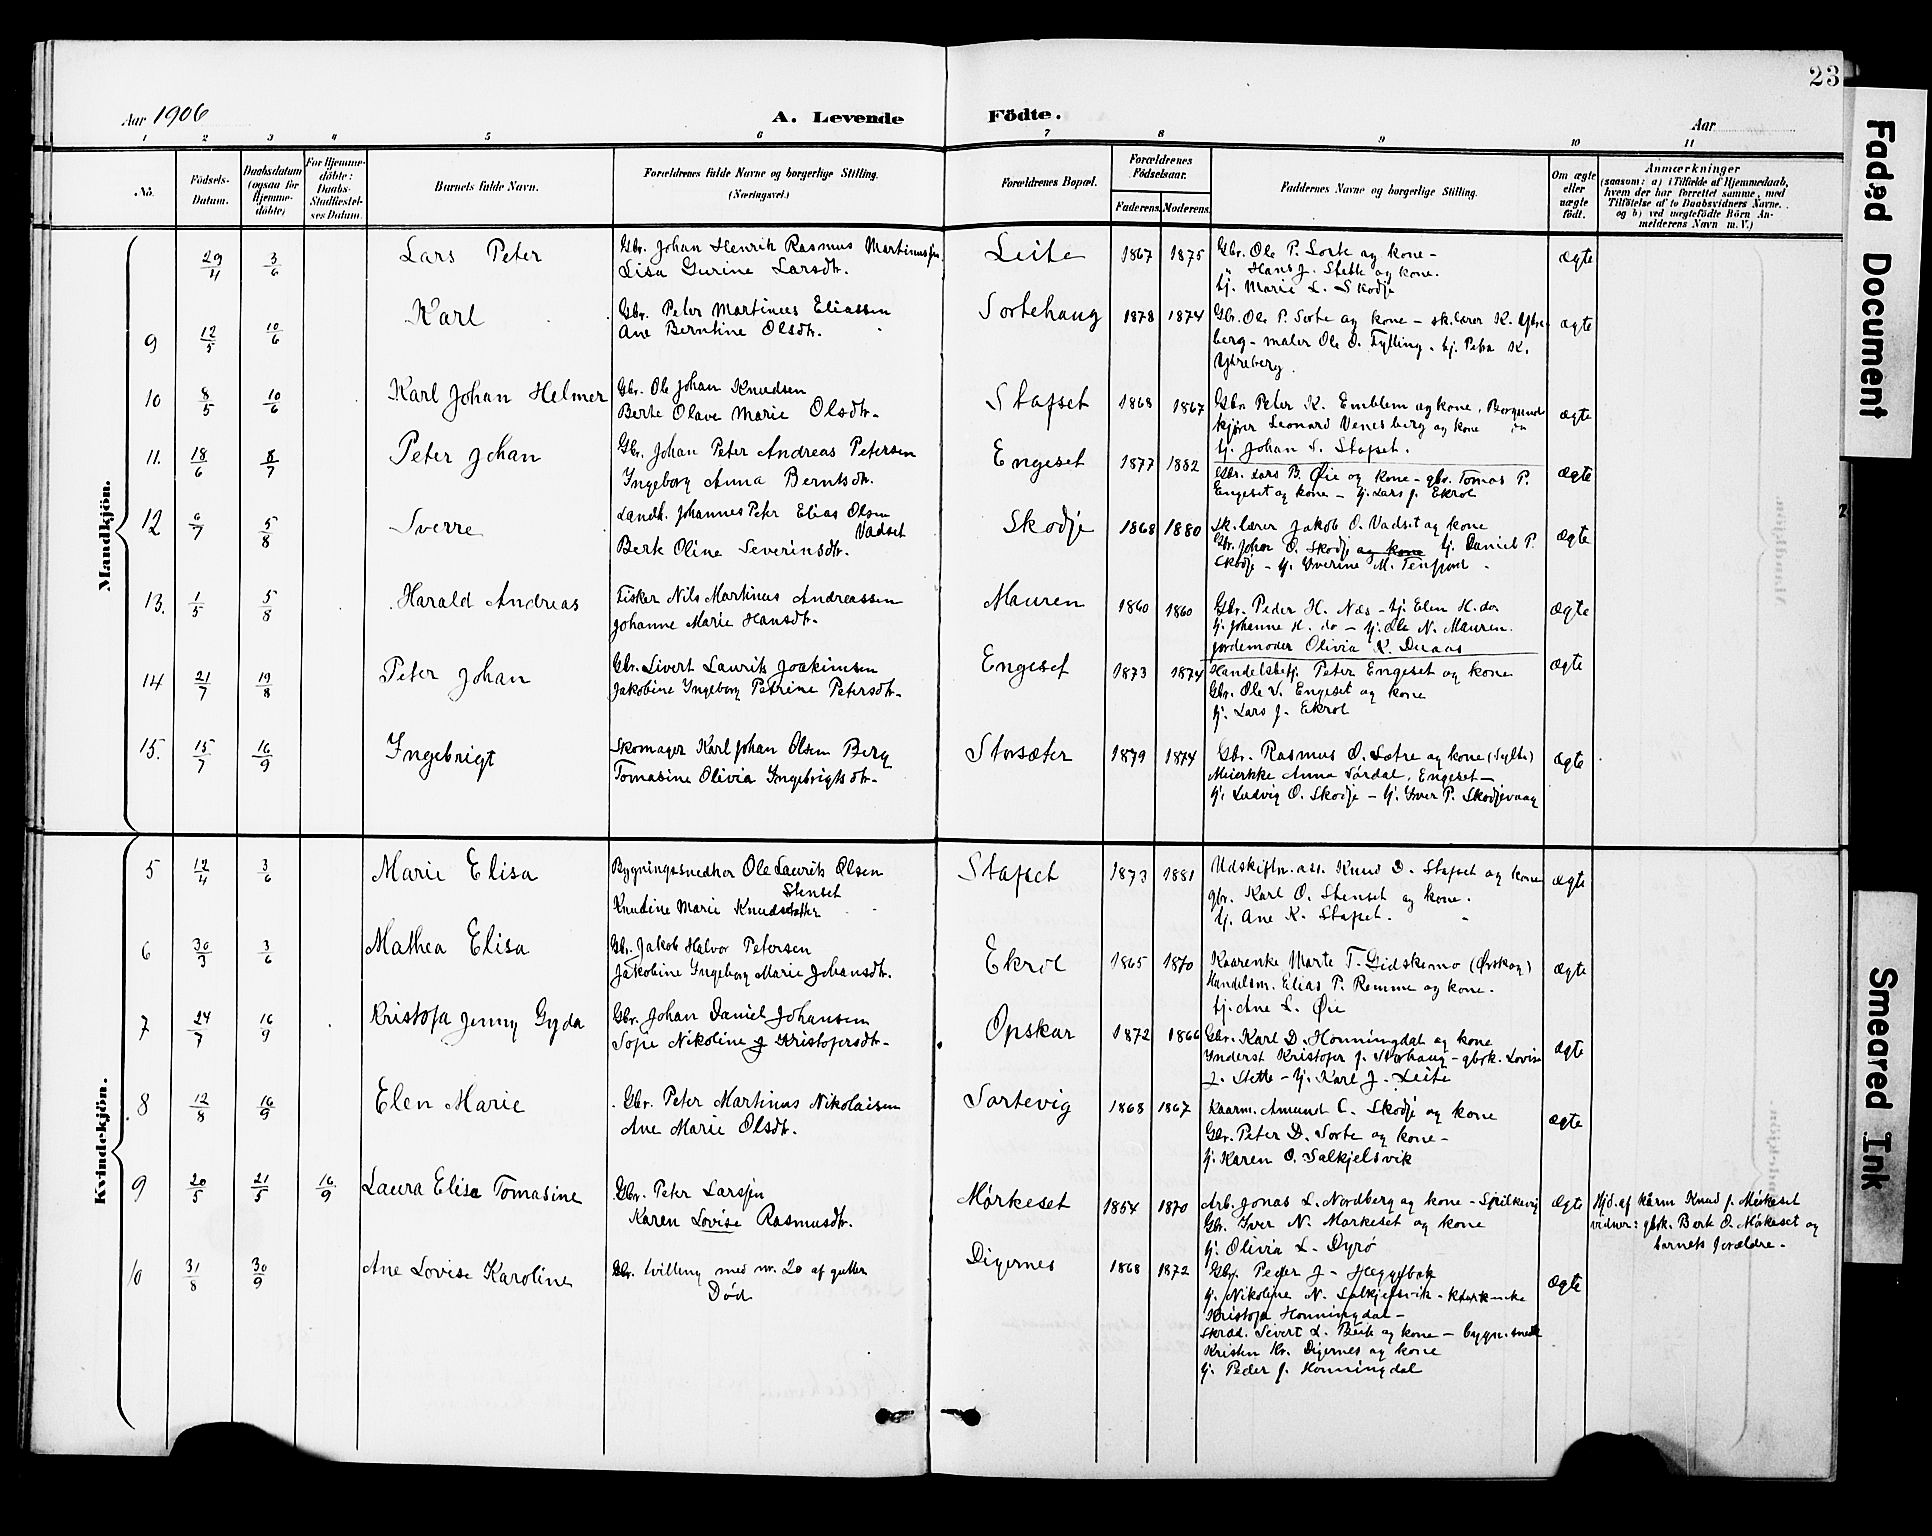 23
Aar 1906
A. Levende
Födte.
Aar
1 2 3 4 5 6 7 8 9 10 11
No.
Födsels-Datum.
Daabsdatum (ogsaa for Hjemme-döbte)
For Hjemme-döbte: Daabs-Stadfæstel-ses Datum.
Barnets fulde Navn.
Forældrenes fulde Navne og borgerlige Stilling. (Næringsvei.)
Forældrenes Bopæl.
Forældrenes Födselsaar.
Faderens. Moderens.
Faddernes Navne og borgerlige Stilling.
Om ægte eller uægte födt.
Anmærkninger
(saasom: a) i Tilfælde af Hjemmedaab,
hvem der har forrettet samme, med
Tilföielse af to Daabsvidners Navne.
og b) ved uægtefödte Börn An-
melderens Navn m. V.)
Mandkjön.
29/4 3/6 Lars Peter
Gbr. Johan Henrik Rasmus Martinussen
Lisa Gurine Larsdtr.
Leite 1867 1875
Gbr. Ole P. Sorte og kone -
" Hans J. Stette og kone.
tj. Marie L. Skodje
ægte
9 12/5 10/6 Karl
Gbr. Peter Martinus Eliassen
Ane Berntine Olsdtr.
Sortehaug 1878 1874
Gbr. Ole P. Sorte og kone - sk.lærer K. Ytre-
berg - maler Ole O. Fylling - tj. Petra K.
Ytreberg.
ægte
10 8/5 10/6 Karl Johan Helmer
Gbr. Ole Johan Knudsen
Berte Olave Marie Olsdtr.
Stafset 1868 1867
Gbr. Peter K. Emblem og kone, Borgund
kjører Leonard Venesberg og kone
tj. Johan S. Stafset.
ægte
11. 18/6 8/7 Peter Johan
Gbr. Johan Peter Andreas Petersen
Ingeborg Anna Berntsdtr.
Engeset 1877 1882
Gbr. Lars B. Øie og kone - gbr. Tomas P.
Engeset og kone - tj. Lars J. Ekrol
ægte
12 6/7 5/8 Sverre
Landh. Johannes Peter Elias Olsen
Vadset
Berte Oline Severinsdtr.
Skodje 1868 1880
Sk.lærer Jakob O. Vadset og kone
Gbr. Johan O. Skodje og kone tj. Daniel P.
Skodje - tj. Iverine M. Tenfjord -
ægte
13. 1/5 5/8 Harald Andreas
Fisker Nils Martinus Andreassen
Johanne Marie Hansdtr.
Mauren 1860 1860
Gbr. Peder H. Næs - tj. Elen H. do
tj. Johanne H. do - tj. Ole N. Mauren.
Jordemoder Olivia K. Duaas
ægte
14 21/7 19/8 Peter Johan
Gbr. Sivert Laurits Joakimsen
Jakobine Ingeborg Petrine Petersdtr.
Engeset 1873 1874
Handelsbetj. Peter Engeset og kone
Gbr. Ole V. Engeset og kone
tj. Lars J. Ekrol
ægte
15. 15/7 16/9 Ingebrigt
Skomager Karl Johan Olsen Berg
Tomasine Olivia Ingebrigtsdtr.
Storsæter 1879 1874
Gbr. Rasmus O. Sætre og kone (Sylte)
Meierske Anna Sørdal, Engeset -
tj. Ludvig O. Skodje - tj. Iver P. Skodjevaag
ægte
Kvindekjön.
5 12/4 3/6 Marie Elisa
Bygningssnedker Ole Laurits Olsen
Stenset
Knudine Marie Knudsdatter
Stafset 1873 1881
Udskiftn. ass. Knud D. Stafset og kone
gbr. Karl O. Stenset og kone.
tj. Ane K. Stafset.
ægte
6 30/3 3/6 Mathea Elisa
Gbr. Jakob Halvor Petersen
Jakobine Ingeborg Marie Johansdtr.
Ekrol 1865 1870
Kaarenke Marte T. Gidskemo (Ørskog)
Handelsm. Elias P. Remme og kone.
tj. Ane L. Øie
ægte
7 24/7 16/9 Kristofa Jenny Gyda
Gbr. Johan Daniel Johansen
Sofie Nikoline J Kristofersdtr.
Opskar 1872 1866
Gbr. Karl D. Honningdal og kone
Inderst Kristofer J. Storhaug - gbrk. Lovise
J. Stette - tj. Karl J. Leite
ægte
8 12/8 16/9 Elen Marie
Gbr. Peter Martinus Nikolaisen
Ane Marie Olsdtr.
Sortevig 1868 1867
Kaarm. Amund C. Skodje og kone
Gbr. Peter D. Sorte og kone -
tj. Karen O. Salkjelsvik
ægte
9 20/5 21/5 16/9 Laura Elise Tomasine
Gbr. Peter Larssen
Karen Lovise Rasmusdtr.
Mørkeset 1864 1870
Arb. Jonas L. Nordberg og kone - Spilkevig
Gbr. Iver N. Mørkeset og kone
tj. Olivia L. Dyrø
ægte
Hjd. af kårm Knud J. Mørkeset
vidner: gbk. Berte O. Mørkeset og
barnets forældre.
10 31/8 30/9 Ane Lovise Karoline
Gbr. tvilling med nr. 20 af gutter
Død
Digernes 1868 1872
Gbr. Peder J. Heggebak
tj. Nikoline N. Salkjelsvik -
Kristofa Honningdal -
Skræd. Sivert L. Beite og kone - bygn. snedk
Kristen Kr. Digernes og kone
tj. Peder J. Honningdal
ægte
Faded Document
Smeared Ink